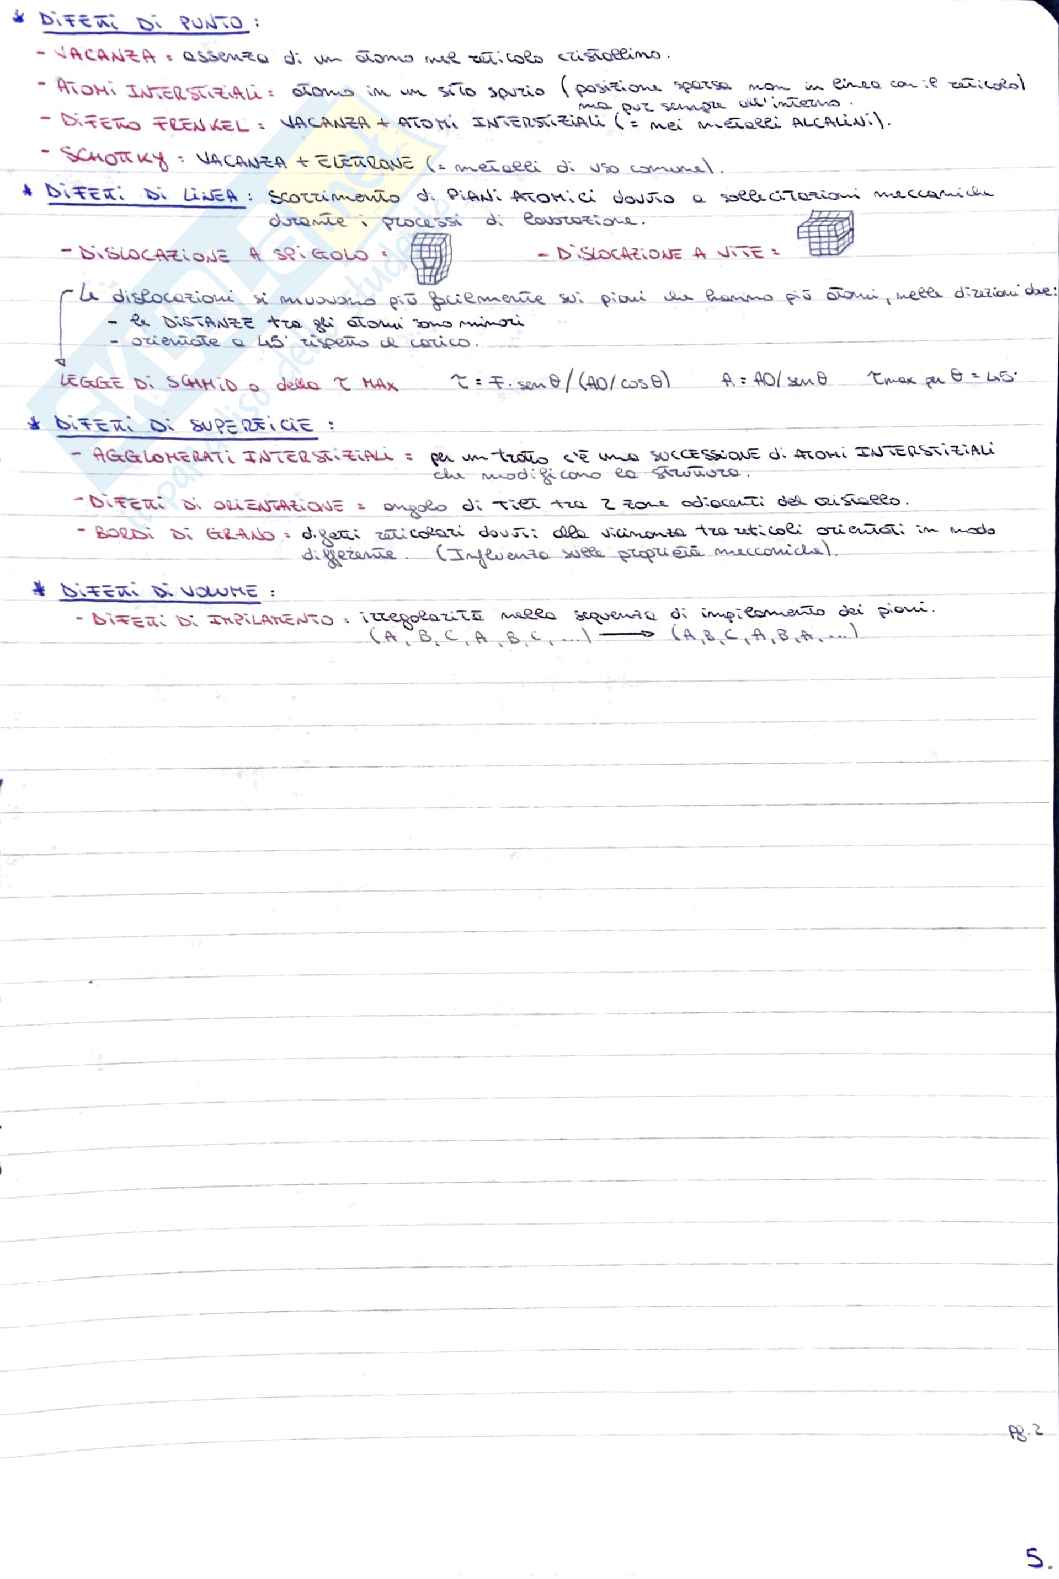 * DIFETTI DI PUNTO :
- VACANZA = assenza di un atomo nel reticolo cristallino.
- ATOMI INTERSTIZIALI = atomo in un sito spurio (posizione sparsa non in linea con il reticolo)
ma pur sempre all'interno.
- DIFETTO FRENKEL = VACANZA + ATOMI INTERSTIZIALI (= nei metalli ALCALINI).
- SCHOTTKY = VACANZA + ELETTRONE (= metalli di uso comune).
* DIFETTI DI LINEA : scorrimento di PIANI ATOMICI dovuto a sollecitazioni meccaniche
durante i processi di lavorazione.
- DISLOCAZIONE A SPIGOLO = - DISLOCAZIONE A VITE =
Le dislocazioni si muovono più facilmente sui piani che hanno più atomi, nelle direzioni dove:
- le DISTANZE tra gli atomi sono minori
- orientate a 45° rispetto al carico.
LEGGE DI SCHMID o della τ MAX τ = F. sen θ / (A0 / cos θ) A = A0 / sen θ τmax per θ = 45°
* DIFETTI DI SUPERFICIE :
- AGGLOMERATI INTERSTIZIALI = per un tratto c'è una SUCCESSIONE di ATOMI INTERSTIZIALI
che modificano la struttura.
- DIFETTI DI ORIENTAZIONE = angolo di TILT tra 2 zone adiacenti del cristallo.
- BORDI DI GRANO = difetti reticolari dovuti alla vicinanza tra reticoli orientati in modo
differente. (Influenza sulle proprietà meccaniche).
* DIFETTI DI VOLUME :
- DIFETTI DI IMPILAMENTO = irregolarità nella sequenza di impilamento dei piani.
(A, B, C, A, B, C, ...) ⟶ (A, B, C, A, B, A, ...)
Pg. 2
5.